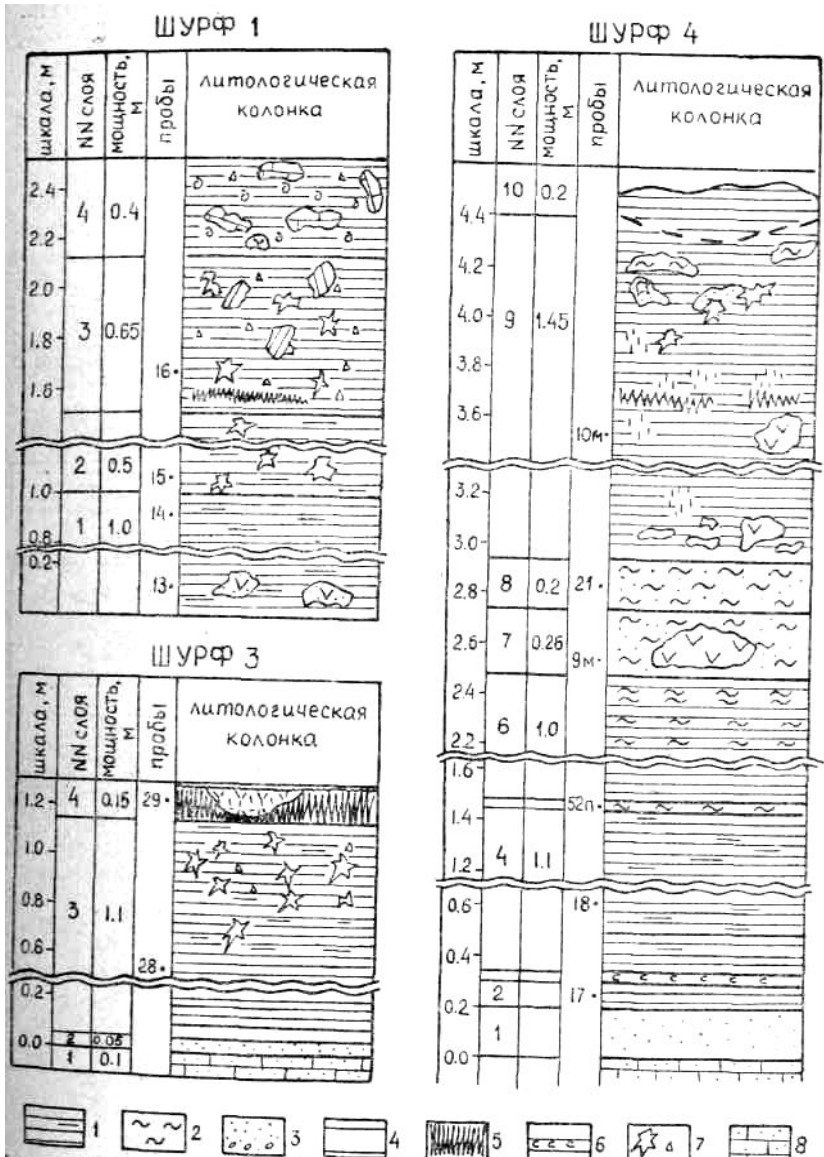 ШУРФ 1
шкала, м
NN слоя
мощность, м
пробы
литологическая
колонка
2.4
2.2
2.0
1.8
1.6
1.0
0.8
0.2
4 0.4
3 0.65
2 0.5
1 1.0
16
15
14
13
ШУРФ 3
шкала, м
NN слоя
мощность, м
пробы
литологическая
колонка
1.2
1.0
0.8
0.6
0.2
0.0
4 0.15
3 1.1
2 0.05
1 0.1
29
28
ШУРФ 4
шкала, м
NN слоя
мощность, м
пробы
литологическая
колонка
4.4
4.2
4.0
3.8
3.6
3.2
3.0
2.8
2.6
2.4
2.2
1.6
1.4
1.2
0.6
0.4
0.2
0.0
10 0.2
9 1.45
8 0.2
7 0.26
6 1.0
4 1.1
2
1
10м
21
9м
52п
18
17
1 2 3 4 5 6 7 8